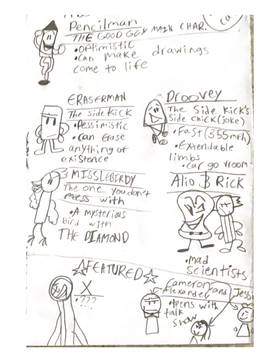 Pencilman
THE GOOD GUY MAIN CHAR.
• OPtimistic
• Can make drawings
come to life
ERASERMAN
THE SideKick
• Pessimistic
• Can ERASE
anything of
existence
Droovey
The Side Kick's
Side chick (joke)
• Fast (355mph)
• Extendable
limbs
• Car go vroom
MISSLEBIRDY
The one you don't
mess with
• A mysterious
bird with
THE DIAMOND
Alio & Rick
• mad
scientists
☆FEATURED☆
X
• ???
Cameron and
Alexander
• Opens with
talk
show
Jess